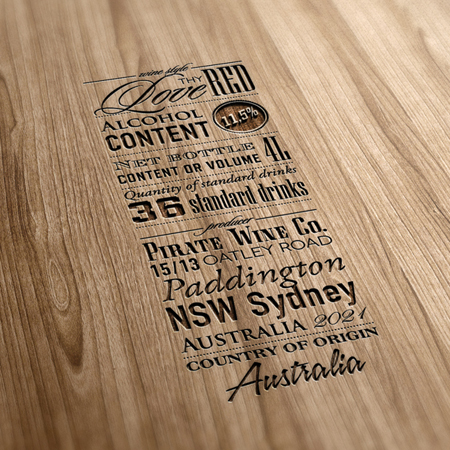 wine style
Love THY RED
ALCOHOL
CONTENT 11.5%
NET BOTTLE
CONTENT OR VOLUME 4L
Quantity of standard drinks
36 standard drinks
producer
PIRATE WINE CO.
15/13 OATLEY ROAD
Paddington
NSW Sydney
AUSTRALIA 2021
COUNTRY OF ORIGIN
Australia